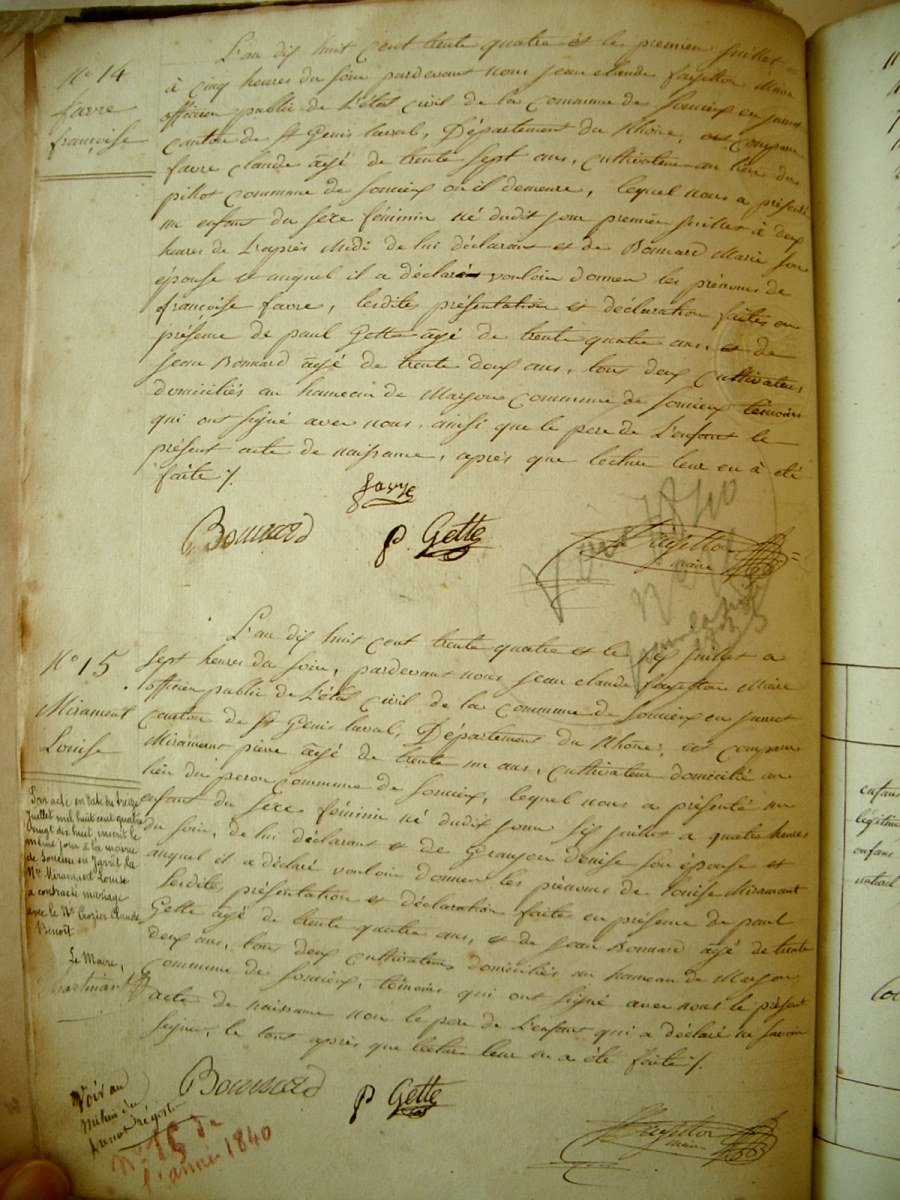 N° 14
favre
françoise
L'an dix huit cent trente quatre et le premier juillet
à cinq heures du soir pardevant nous jean claude fayetton Maire
officier public de L'état civil de la commune de Soucieux en jarret
canton de St Genis Laval, Département du Rhône, est comparu
favre claude agé de trente sept ans, cultivateur au lieu du
pillot commune de soucieux où il demeure, lequel nous a présenté
un enfant du sexe féminin né dudit jour premier juillet à deux
heures de L'après Midi de lui déclarant et de Bonnard Marie son
épouse et auquel il a déclaré vouloir donner les prénoms de
françoise favre, lesdites présentation et déclaration faites en
présence de paul Gette agé de trente quatre ans, et de
jean Bonnard agé de trente deux ans, tous deux cultivateurs
domiciliés au hameau de Marjon commune de soucieux témoins
qui ont signé avec nous, ainsi que le pere de L'enfant le
présent acte de naissance, après que lecture leur en à été
faite /.
favre
Bonnard
P Gette
fayetton
maire
Voir 1840
N° 15
Miramont
Louise
L'an dix huit cent trente quatre et le six juillet a
sept heures du soir, pardevant nous jean claude fayetton Maire
officier public de L'état civil de la commune de Soucieux en jarret
canton de St Genis Laval, Département du Rhône, est comparu
Miramont pierre agé de trente un ans, cultivateur domicilié au
lieu du peron commune de soucieux, lequel nous a présenté un
enfant du sexe féminin né dudit jour six juillet a quatre heures
du soir, de lui déclarant et de Granjon Denise son épouse et
auquel il a déclaré vouloir donner les prénoms de Louise Miramont
lesdites présentation et déclaration faites en présence de paul
Gette agé de trente quatre ans, et de jean Bonnard agé de trente
deux ans, tous deux cultivateurs domiciliés au hameau de Marjon
commune de soucieux, témoins qui ont signé avec nous le présent
acte de naissance non le pere de L'enfant qui a déclaré ne savoir
signer, le tout après que lecture leur en a été faite /.
Par acte en date du treize
juillet mil huit cent quatre
vingt dix huit inscrit le
même jour à la mairie
de Soucieu en Jarret la
Née Miramont Louise
a contracté mariage
avec le Né Crozier Claude
Benoît
Le Maire,
Bonnard
P Gette
fayetton
maire
Voir au
milieu du
present régistre
N° 15 de
l'année 1840
enfans
légitim
enfans
naturel